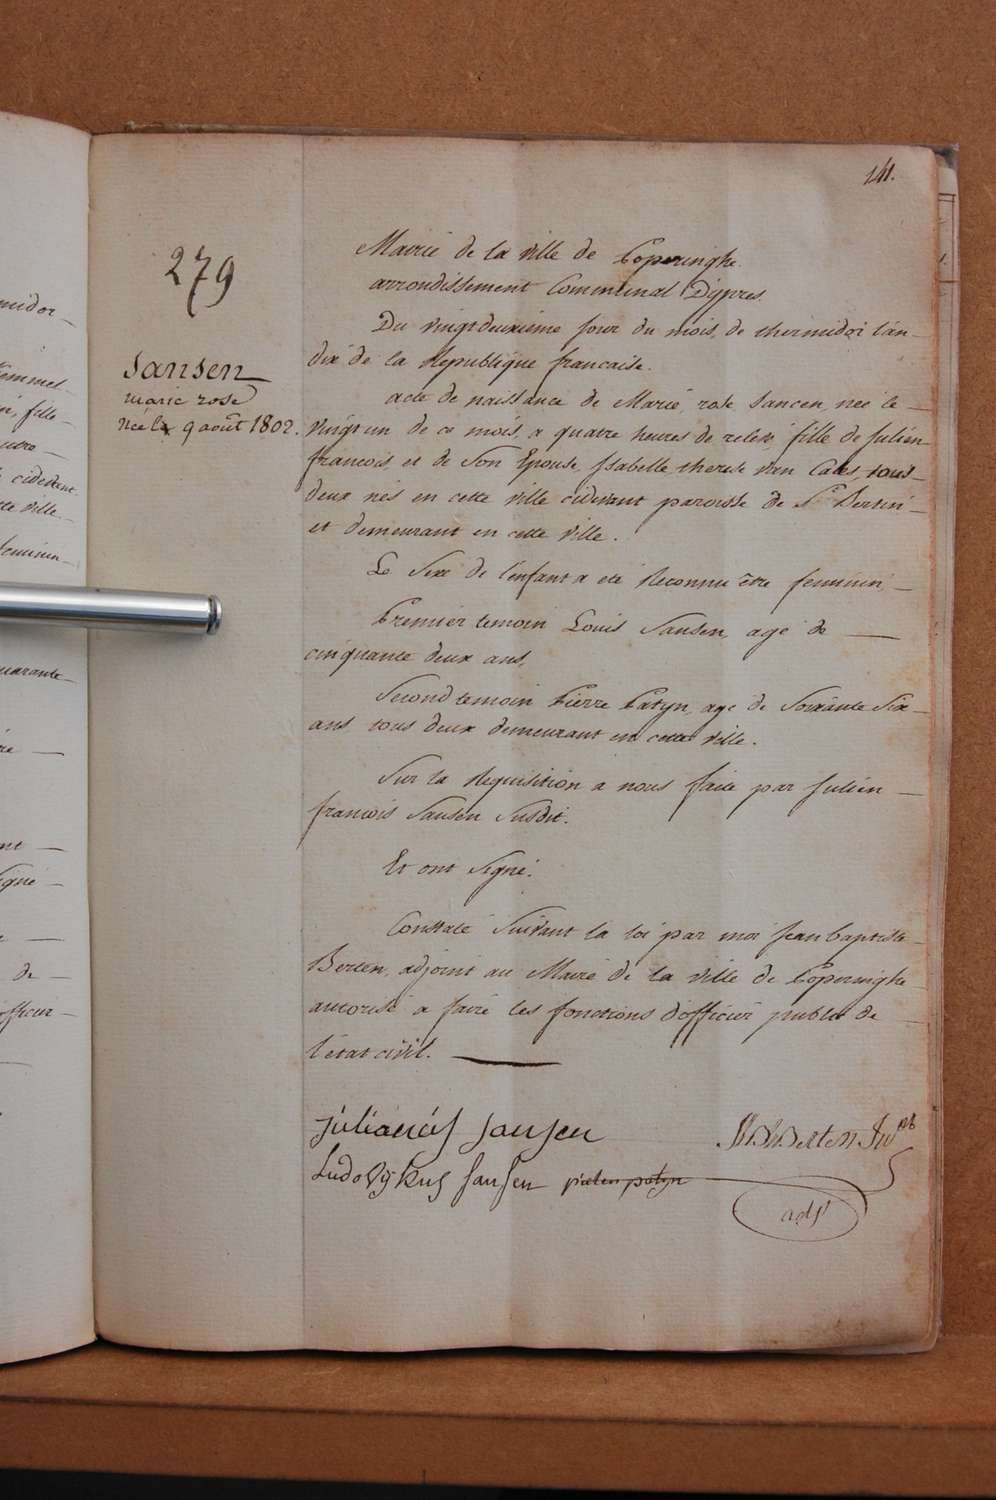 141.
279
Jansen
marie rose
née le 9 août 1802.
Mairie de la ville de Poperinghe.
arrondissement Communal D'ypres.
Du vingtdeuxième jour du mois de thermidor l'an
dix de la Republique francaise.
acte de naissance de Marie rose Jansen, nee le
vingt un de ce mois, a quatre heures de relevé, fille de Julien
francois, et de Son Epouse, Isabelle therese van Caes, tous
deux nés en cette ville cidevant paroisse de St Bertin
et demeurant en cette ville.
Le Sexe de l'enfant a eté Reconnu être feminin,
Premier temoin Louis Jansen, agé de
cinquante deux ans,
Second temoin Pierre Patyn, age de Soixante Six
ans, tous deux demeurant en cette ville.
Sur la Requisition a nous faite par Julien
francois Jansen Susdit.
Et ont Signé.
Constaté Suivant la loi par moi Jean baptiste
Berten, adjoint au Maire de la ville de Poperinghe
autorisé a faire les fonctions d'officier public de
l'état civil.
Jansen
Ludovikus Jansen pieter patyn
Berten
adjt
midor
fille
cidevant
tte ville.
feminin
uarante
de
officier